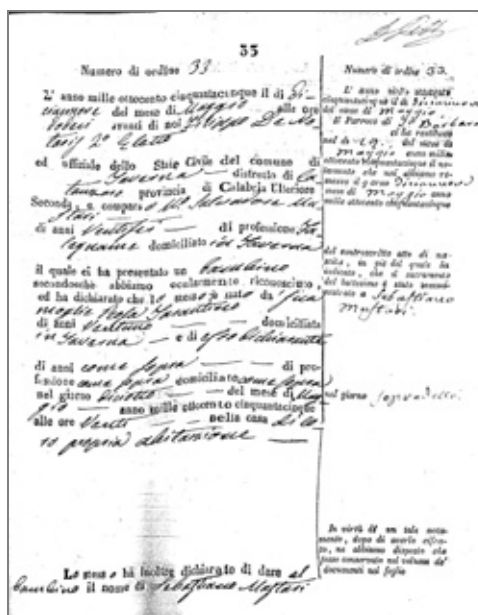 33
Numero di ordine 33
L' anno mille ottocento cinquantacinque il dì Di-
ciannove del mese di Maggio alle ore
avanti di noi Filippo De
2° Eletto
ed uffiziale dello Stato Civile del comune di
Taverna distretto di Ca-
tanzaro provincia di Calabria Ulteriore
Seconda, è comparso Salvatore
di anni Ventisei di professione
domiciliato in Taverna
il quale ci ha presentato un bambino
secondochè abbiamo ocularmente riconosciuto,
ed ha dichiarato che lo stesso è nato da sua
moglie Rosa
di anni Ventuno domiciliata
in Taverna e di esso Dichiarante
di anni come sopra di pro-
fessione come sopra domiciliato come sopra
nel giorno Diciotto del mese di Mag
gio anno mille ottocento cinquantacinque
alle ore Venti nella casa di lo
ro propria abitazione
Lo stesso ha inoltre dichiarato di dare al
bambino il nome di Sebastiano Mastari
Numero di ordine 33.
L' anno mille ottocento
cinquantacinque il dì Diciannove
del mese di Maggio
il Parroco di S. Barbara
ci ha restituito
nel dì 19 del mese di
Maggio anno mille
ottocento cinquantacinque il no-
tamento che noi abbiamo ri-
messo il giorno Diciannove
mese di Maggio anno
mille ottocento cinquantacinque
del controscritto atto di na-
scita, in piè del quale ha
indicato, che il sacramento
del battesimo è stato ammi-
nistrato a Sebastiano
Mastari
nel giorno sopradetto
In virtù di un tale nota-
mento, dopo di averlo cifra-
to, ne abbiamo disposto che
fosse conservato nel volume de'
documenti nel foglio